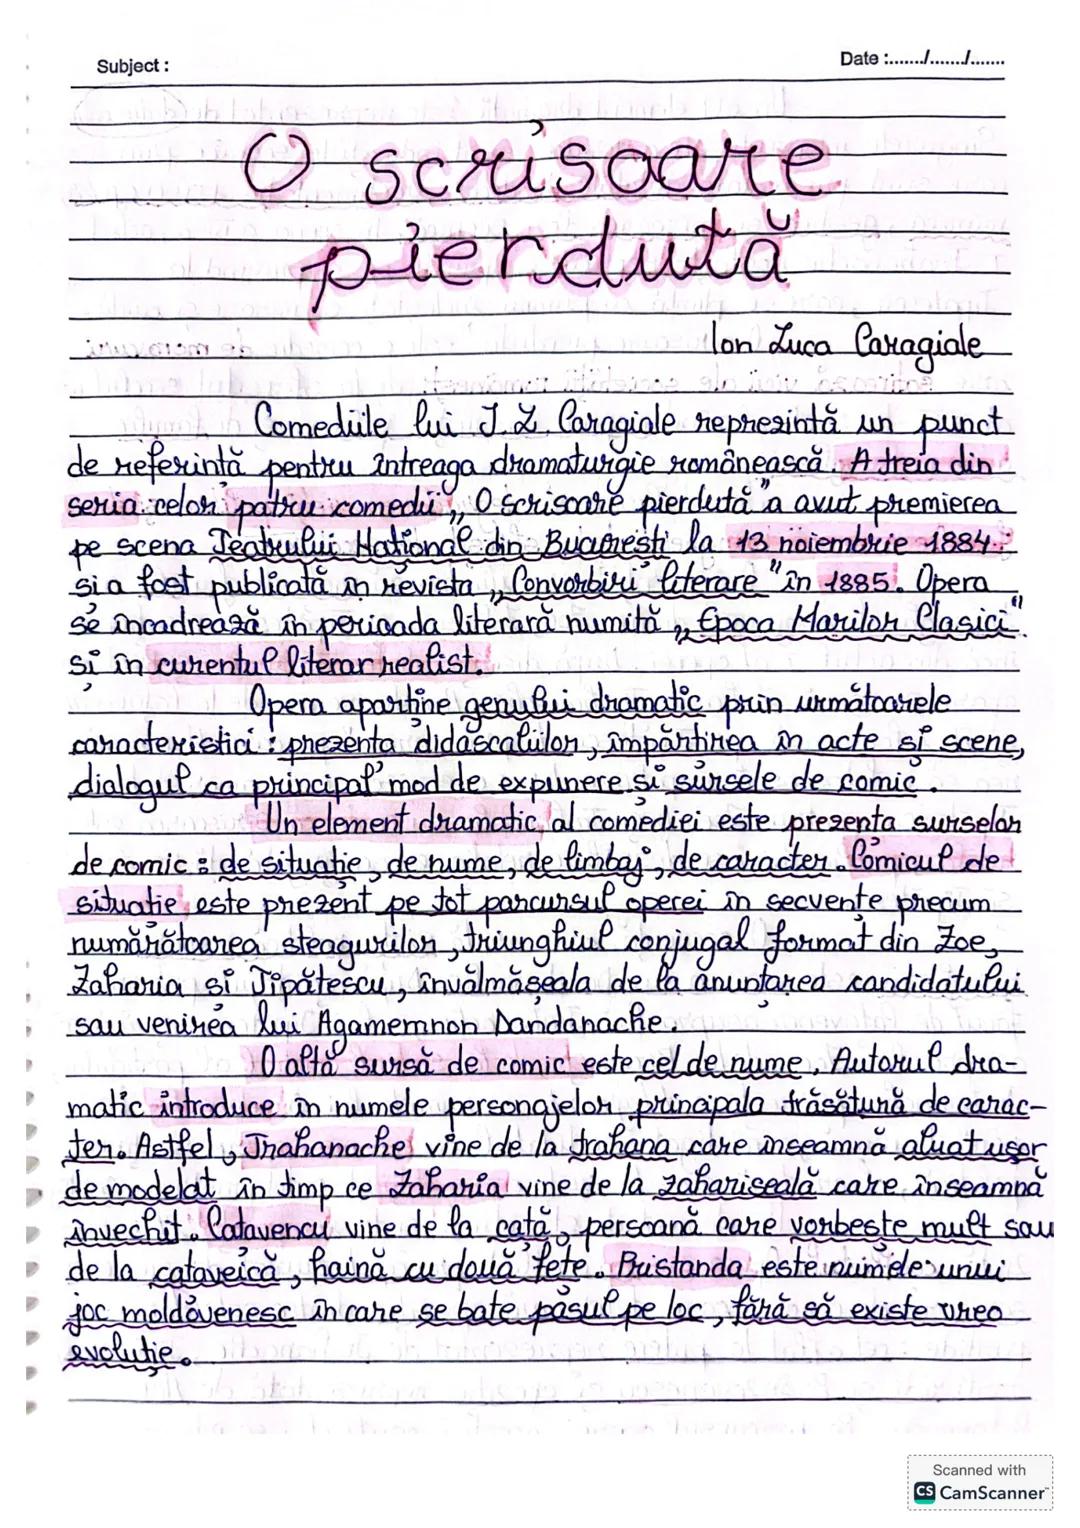 Subject :
Date :......./......./.......
O scrisoare
pierdută
Ion Luca Caragiale
Comediile lui I. L. Caragiale reprezintă un punct
de referință pentru întreaga dramaturgie românească. A treia din
seria celor patru comedii „O scrisoare pierdută" a avut premierea
pe scena Teatrului Național din București la 13 noiembrie 1884
și a fost publicată în revista „Convorbiri literare" în 1885. Opera
se încadrează în perioada literară numită „Epoca Marilor Clasici".
și în curentul literar realist.
Opera aparține genului dramatic prin următoarele
caracteristici : prezența didascaliilor, împărțirea în acte și scene,
dialogul ca principal mod de expunere și sursele de comic.
Un element dramatic al comediei este prezența surselor
de comic : de situație, de nume, de limbaj, de caracter. Comicul de
situație este prezent pe tot parcursul operei în secvențe precum
numărătoarea steagurilor, triunghiul conjugal format din Zoe,
Zaharia și Tipătescu, învălmășeala de la anunțarea candidatului
sau venirea lui Agamemnon Dandanache.
O altă sursă de comic este cel de nume. Autorul dra-
matic introduce în numele personajelor principala trăsătură de carac-
ter. Astfel, Trahanache vine de la trahana care înseamnă aluat ușor
de modelat în timp ce Zaharia vine de la zahariseală care înseamnă
învechit. Catavencu vine de la cață, persoană care vorbește mult sau
de la cataveică, haină cu două fețe. Pristanda este numele unui
joc moldovenesc în care se bate pasul pe loc, fără să existe vreo
evoluție.
Scanned with
CS CamScanner